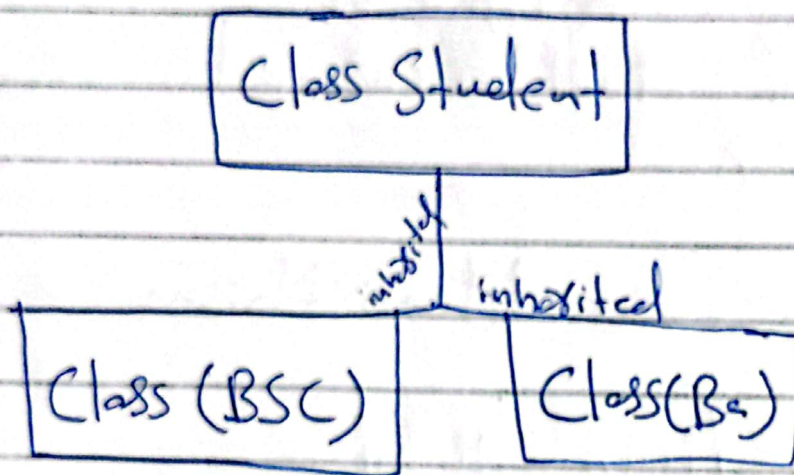 Class Student
inherited
inherited
Class (BSC)
Class (Ba)